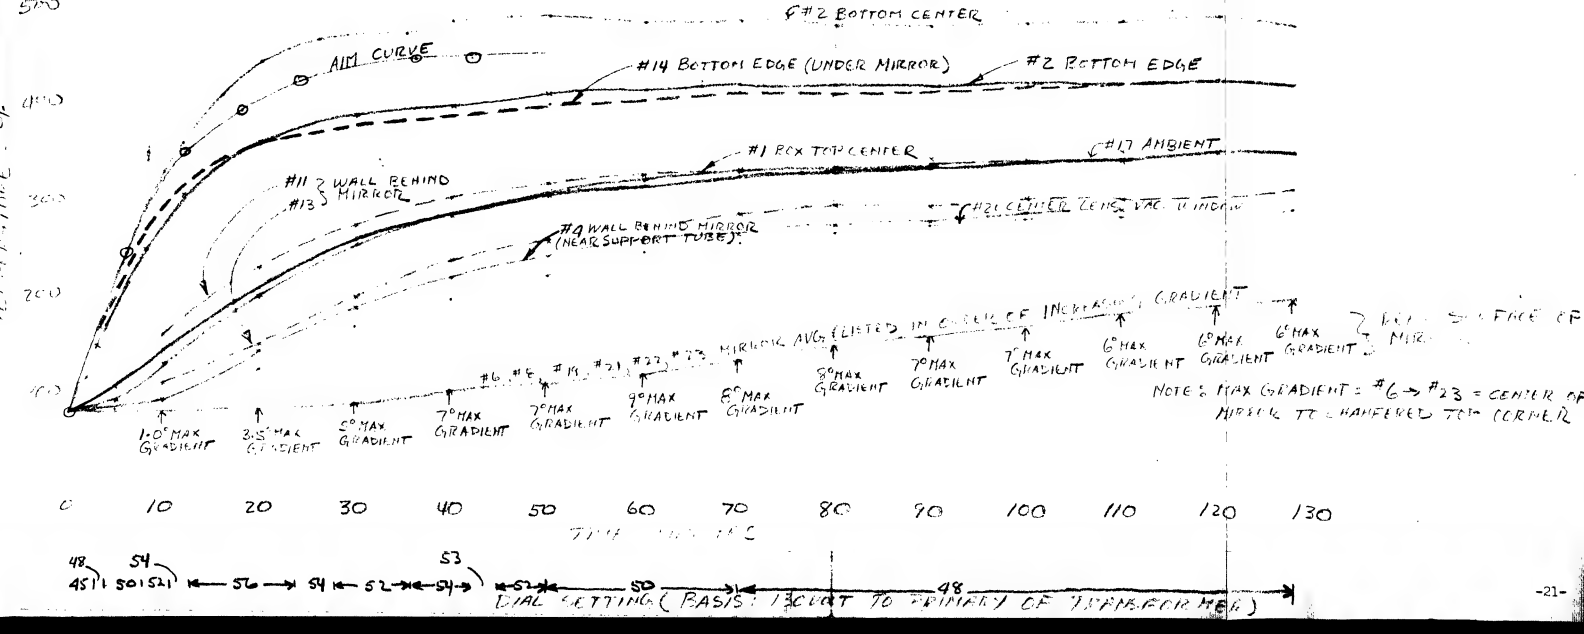 500
#2 BOTTOM CENTER
AIM CURVE
#14 BOTTOM EDGE (UNDER MIRROR)
#2 BOTTOM EDGE
400
#1 BOX TOP CENTER
#17 AMBIENT
#11 } WALL BEHIND
#13 } MIRROR
300
#4 WALL BEHIND MIRROR
(NEAR SUPPORT TUBE)
CENTER LENS VAC. WINDOW
200
#6, #8, #19, #21, #22, #23 MIRROR AVG (LISTED IN ORDER OF INCREASING GRADIENT
OF
1.0° MAX GRADIENT
3.5° MAX GRADIENT
5° MAX GRADIENT
7° MAX GRADIENT
7° MAX GRADIENT
9° MAX GRADIENT
8° MAX GRADIENT
8° MAX GRADIENT
7° MAX GRADIENT
7° MAX GRADIENT
6° MAX GRADIENT
6° MAX GRADIENT
6° MAX GRADIENT
NOTE: MAX GRADIENT = #6 → #23 = CENTER OF
MIRROR TO CHAMFERED TOP CORNER
0 10 20 30 40 50 60 70 80 90 100 110 120 130
TIME
48 54 53
45 50 52 56 54 52 54 52 50 48
DIAL SETTING (BASIS: 130 VOLT TO PRIMARY OF TRANSFORMER)
-21-